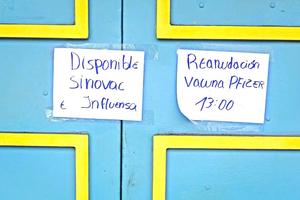 Disponible
Sinovac
e Influensa
Reanudación
Vacuna PFizER
13:00